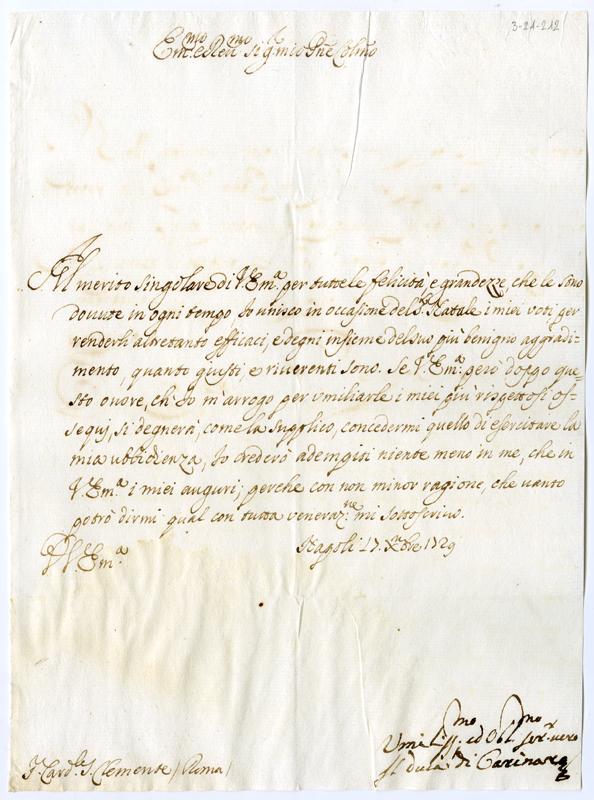 3-21-212
Em.mo e Rev.mo Sig.r mio P.ne Col.mo
Al merito singolare di V.Em.a per tutte le felicità e grandezze, che le sono
dovute in ogni tempo Io unisco in occasione del S. Natale i miei voti per
renderli altretanto efficaci, e degni insieme del suo più benigno aggradi-
mento, quanto giusti, e riverenti sono. Se V.Em.a però doppo que-
sto onore, ch'Io m'arrogo per umiliarle i miei più rispettosi os-
sequj, si degnerà, come la supplico, concedermi quello di esercitare la
mia ubbidienza, Io crederò adempiti niente meno in me, che in
V.Em.a i miei auguri; perche con non minor ragione, che vanto
potrò dirmi qual con tutta veneraz.ne mi sottoscrivo.
D V.Em.a
Napoli 17 Xbre 1729
Umiliss.mo ed Obl.mo ser.r vero
Il Duca di Carinaro
S.r Card.le S. Clemente / Roma /